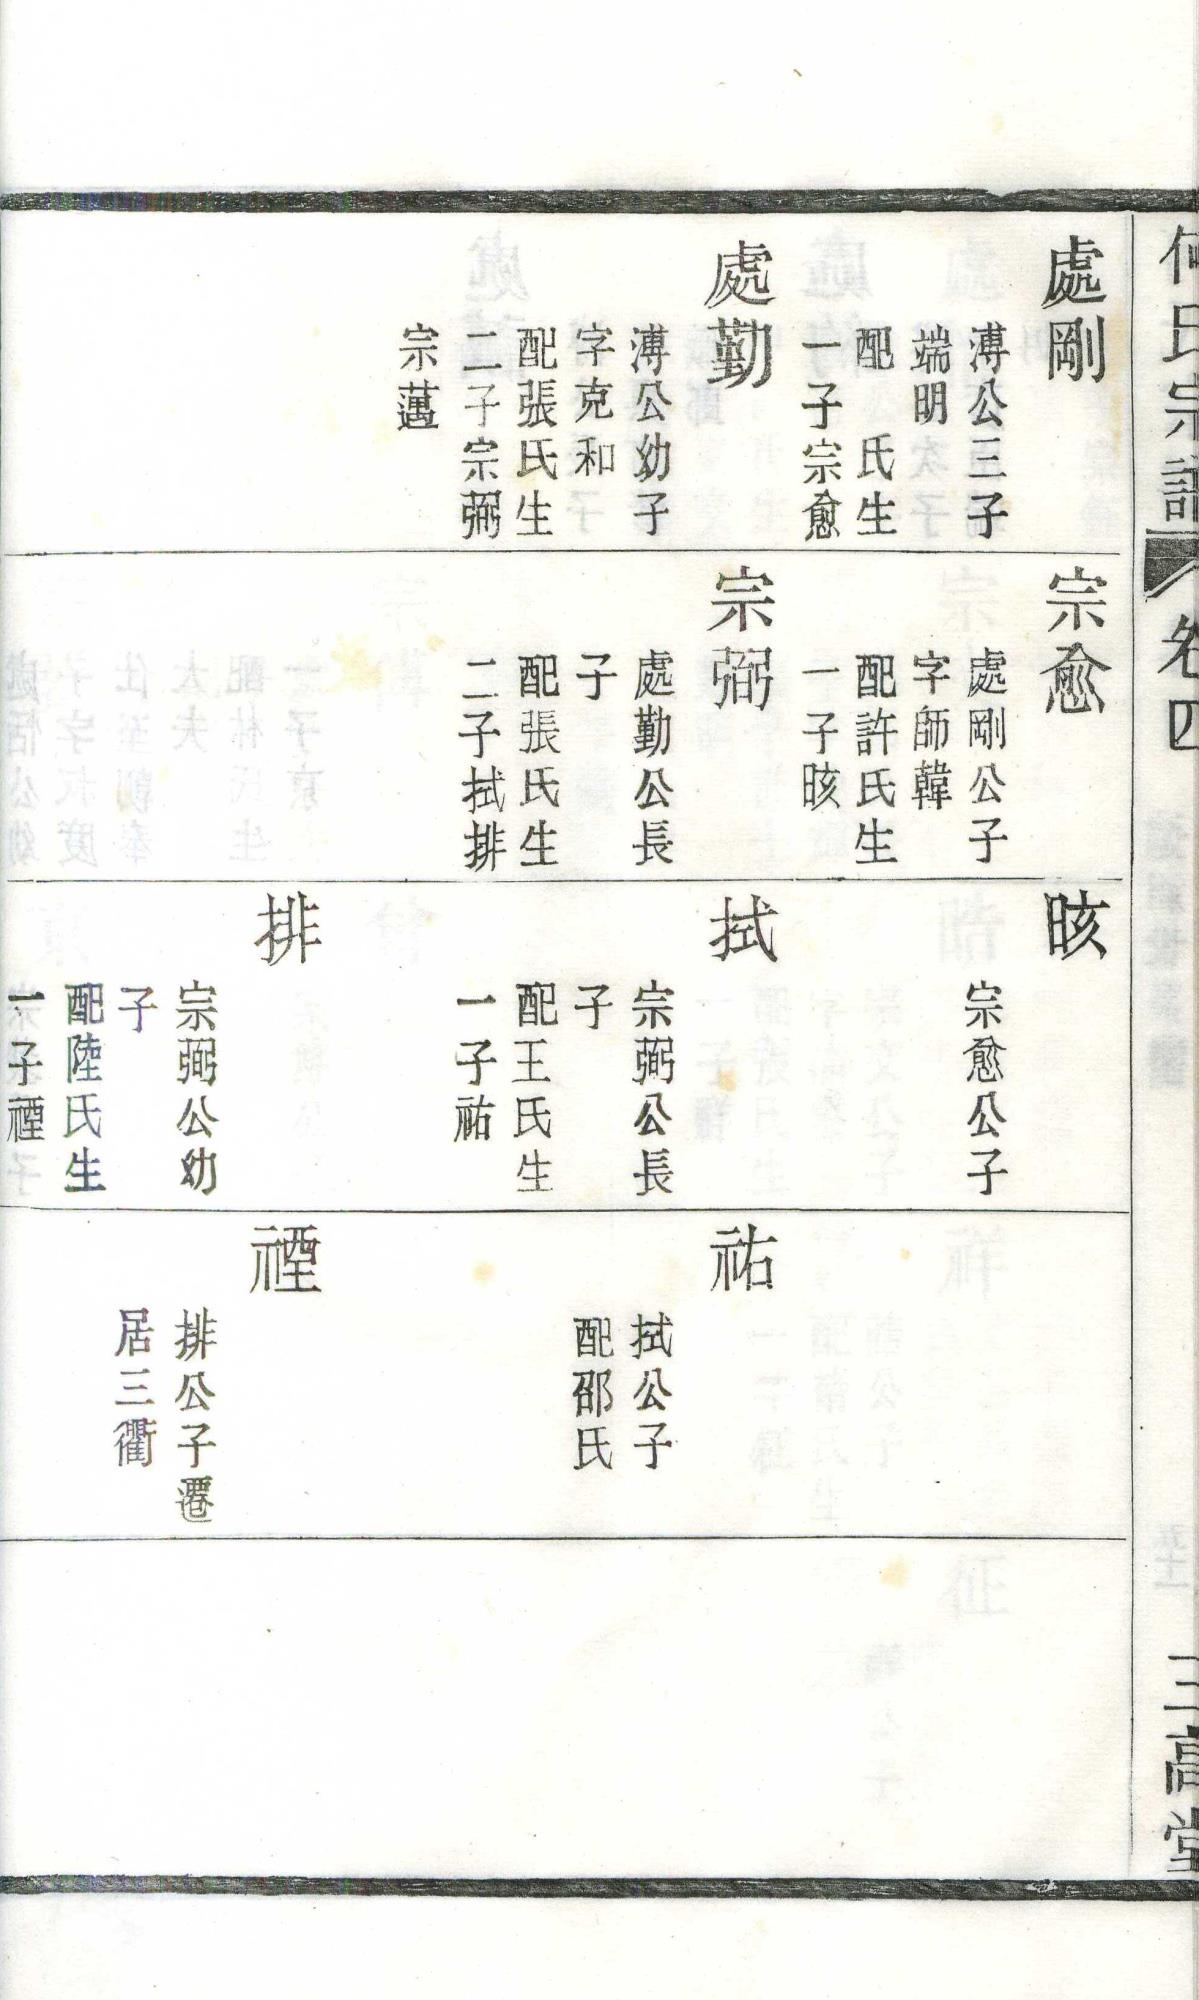 何氏宗譜
卷四
三高堂
處剛
溥公三子
端明
配　氏生
一子宗愈
處勤
溥公幼子
字克和
配張氏生
二子宗弼
宗邁
宗愈
處剛公子
字師韓
配許氏生
一子晐
宗弼
處勤公長
子
配張氏生
二子拭排
晐
宗愈公子
拭
宗弼公長
子
配王氏生
一子祐
排
宗弼公幼
子
配陸氏生
一子禋
祐
拭公子
配邵氏
禋
排公子遷
居三衢